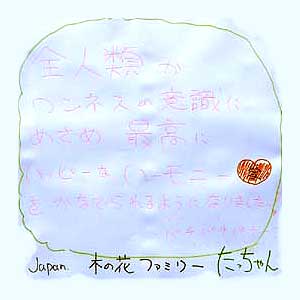 全人類が
ワンネスの意識に
めざめ 最高に
ハッピーなハーモニー
をかなでられるようになりました。
パチパチパチ
Japan. 木の花ファミリー たっちゃん